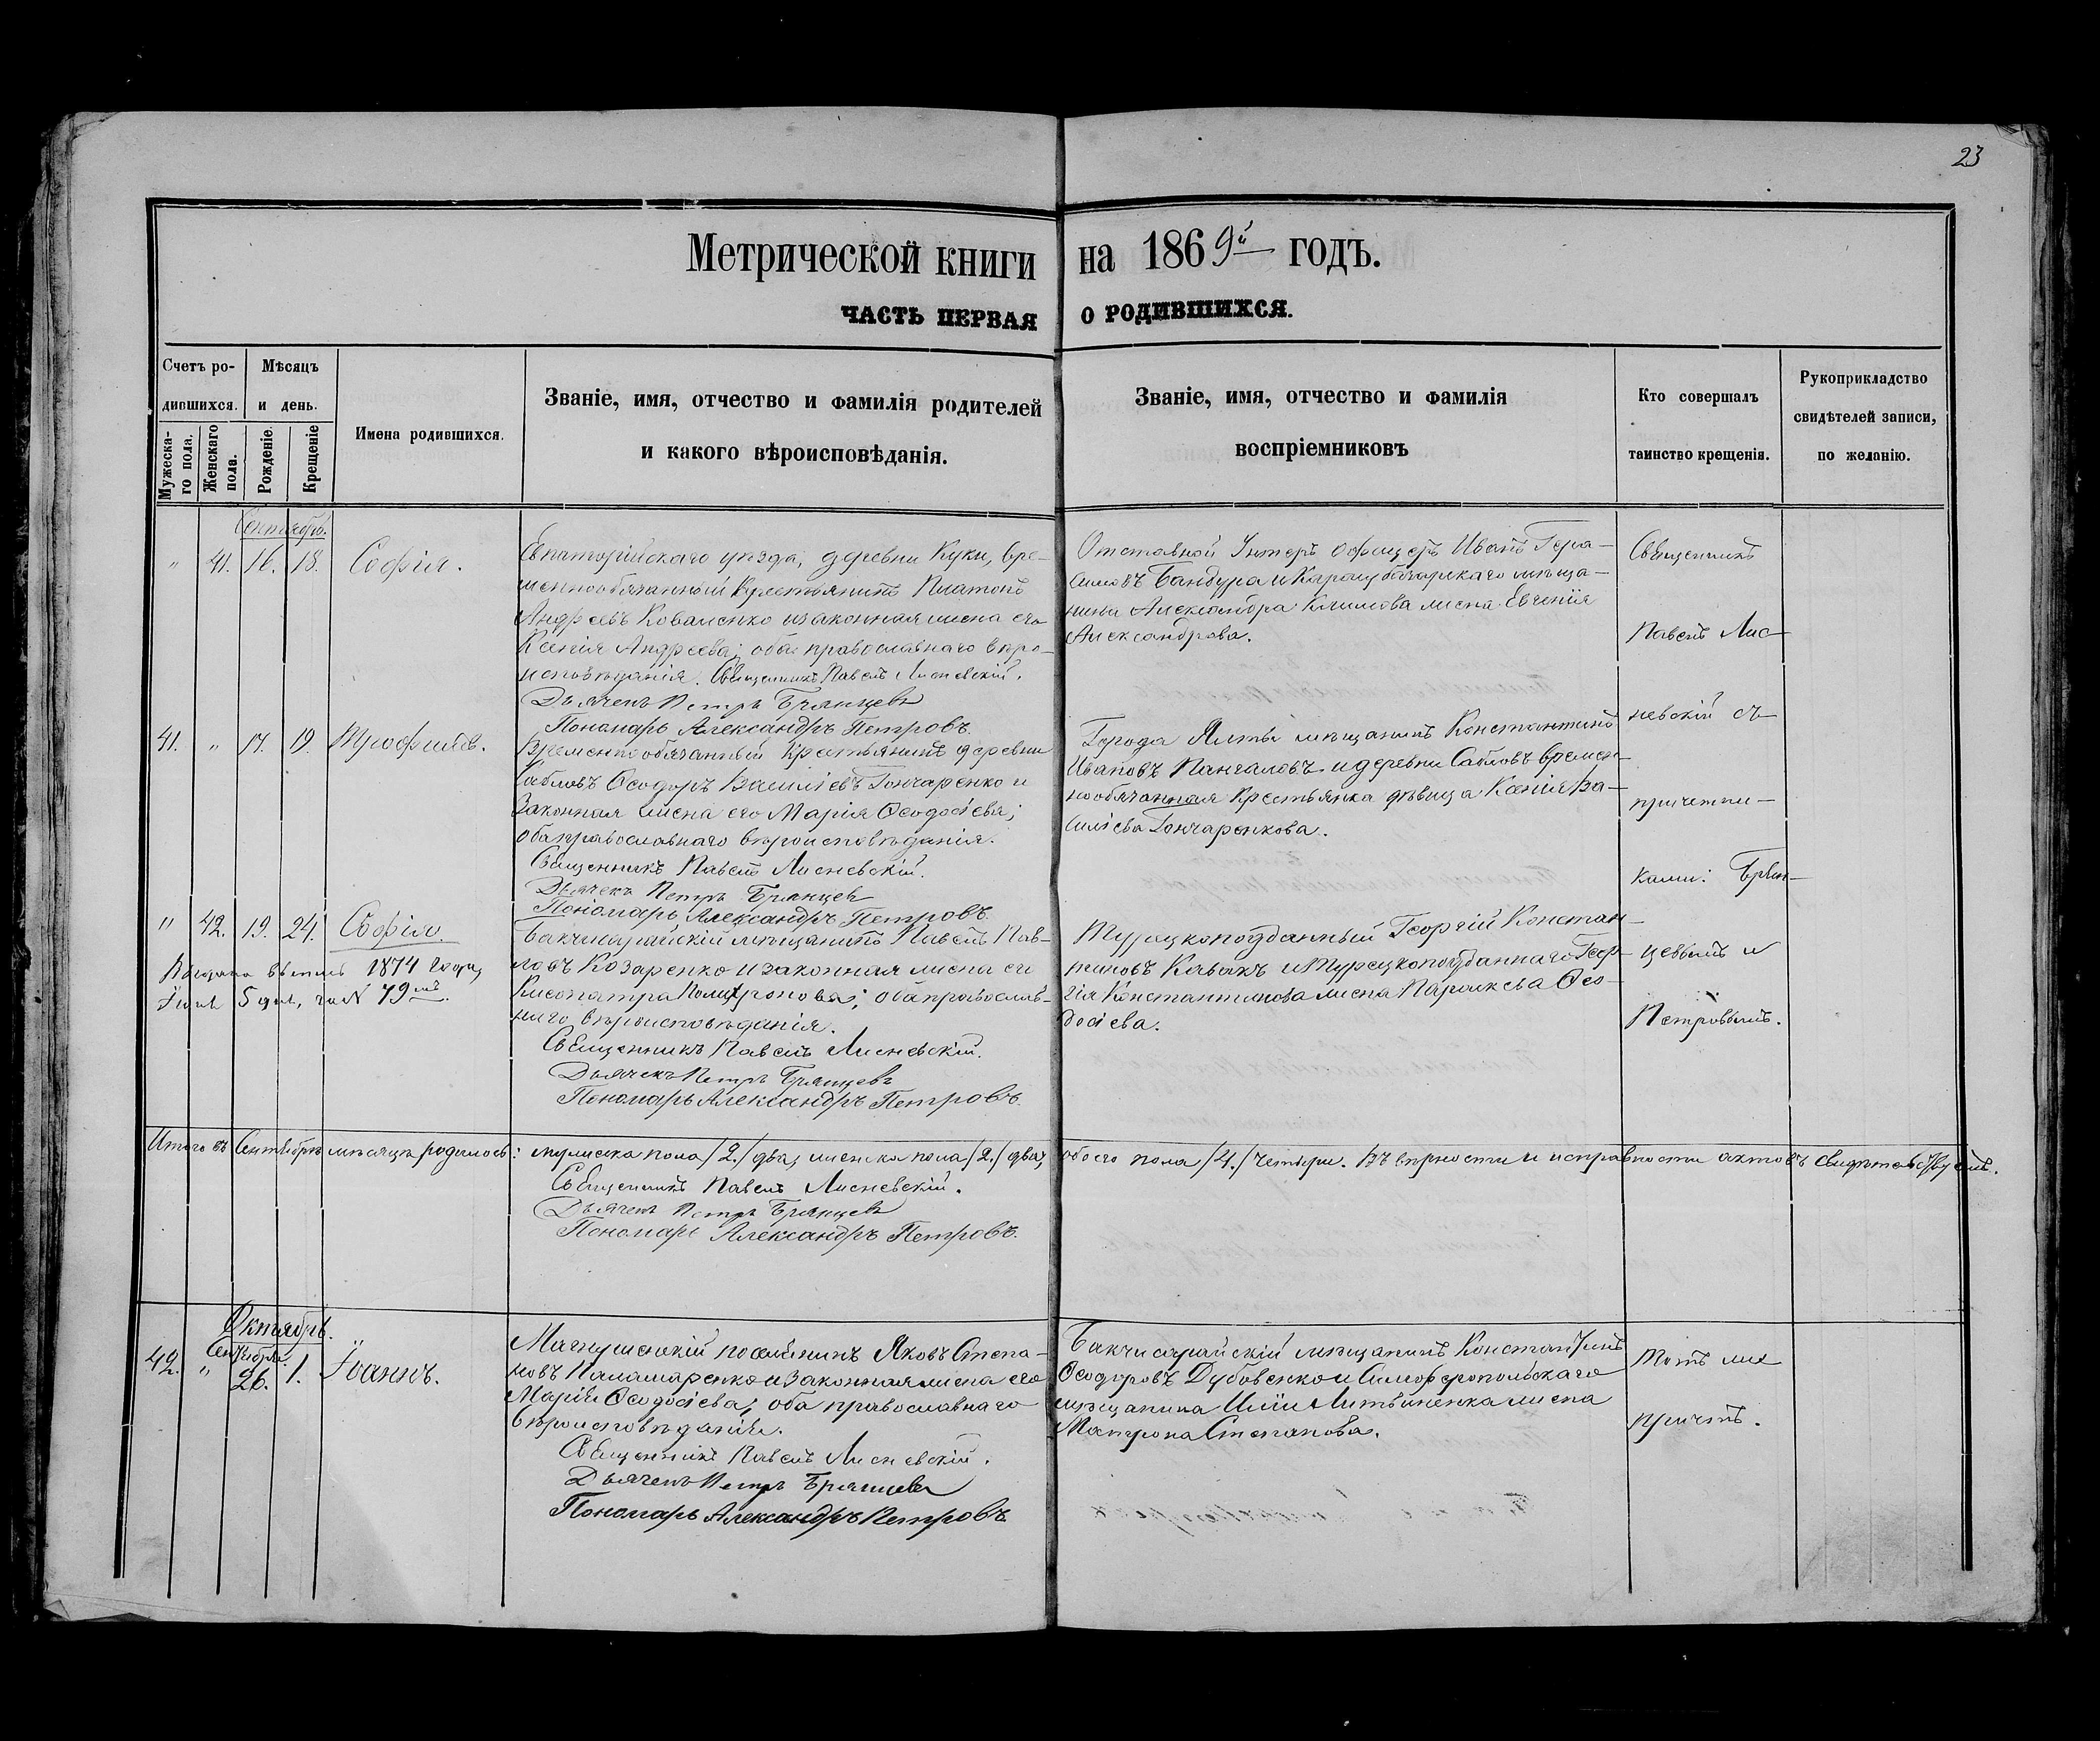 23
Метрической книги на 1869й годъ.
ЧАСТЬ ПЕРВАЯ О РОДИВШИХСЯ.
Счетъ ро-
дившихся.
Мужеска-
го пола.
Женскаго
пола.
Мѣсяцъ
и день.
Рожденіе.
Крещеніе
Имена родившихся.
Званіе, имя, отчество и фамилія родителей
и какого вѣроисповѣданія.
Званіе, имя, отчество и фамилія
воспріемниковъ
Кто совершалъ
таинство крещенія.
Рукоприкладство
свидѣтелей записи,
по желанію.
Сентябрь.
" 41. 16. 18. Софія.
Евпаторійскаго уѣзда, деревни Куки, вре-
меннообязанный крестьянинъ Платонъ
Андреевъ Коваленко и законная жена его
Ксенія Андреева; оба православнаго вѣро-
исповѣданія. Священникъ Павелъ Лисневскій.
Дьячекъ Петръ Брянцевъ
Пономарь Александръ Петровъ.
Отставной Унтеръ Офицеръ Иванъ Гера-
симовъ Бандура и Карасубазарскаго мѣща-
нина Александра Климова жена Евгенія
Александрова.
Священникъ
Павелъ Лис-
невскій съ
причетни-
ками: Брян-
цевымъ и
Петровымъ.
41. " 17. 19. Трофимъ.
Временнообязанный крестьянинъ деревни
Сабловъ Ѳеодоръ Васильевъ Гончаренко и
законная жена его Марія Ѳеодосіева;
оба православнаго вѣроисповѣданія.
Священникъ Павелъ Лисневскій.
Дьячекъ Петръ Брянцев
Пономарь Александръ Петровъ.
Города Ялты мѣщанинъ Константинъ
Ивановъ Пангаловъ и деревни Сабловъ времен-
нообязанная крестьянка дѣвица Ксенія Ва-
силіева Гончаренкова.
" 42. 19. 24. Софія.
1874 года,
5 дня, за № 79мъ.
Бакчисарайскій мѣщанинъ Павелъ Пав-
ловъ Козаренко и законная жена его
Клеопатра Полихронова; оба православ-
наго вѣроисповѣданія.
Священникъ Павелъ Лисневскій.
Дьячекъ Петръ Брянцевъ
Пономарь Александръ Петровъ.
Турецкоподданный Георгій Констан-
тиновъ Кавакъ и Турецкоподданнаго Геор-
гія Константинова жена Параскева Ѳео-
досіева.
Итого въ Сентябрѣ мѣсяцѣ родилось: мужеска пола /2./ два, женска пола /2./ два, обоего пола /4./ четыре. Въ вѣрности и исправности актовъ свидѣтельствуемъ.
Священникъ Павелъ Лисневскій.
Дьячекъ Петръ Брянцевъ
Пономарь Александръ Петровъ.
Октябрь.
Сентября.
42. " 26. 1. Іоаннъ.
поселянинъ Яковъ Степа-
новъ Паламаренко и законная жена его
Марія Ѳеодосіева; оба православнаго
вѣроисповѣданія.
Священникъ Павелъ Лисневскій.
Дьячекъ Петръ Брянцевъ
Пономарь Александръ Петровъ.
Бакчисарайскій мѣщанинъ Константинъ
Ѳеодоровъ Дубовенко и Симферопольскаго
мѣщанина Иліи Литвиненка жена
Матрона Степанова.
Тотъ же
причтъ.